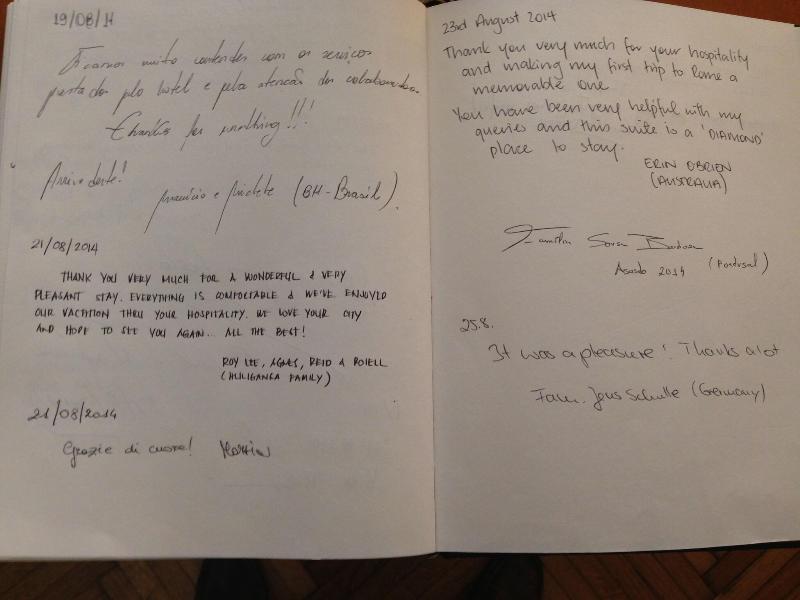 19/08/14
Ficamos muito contentes com os serviços
prestados pelo hotel e pela atenção dos colaboradores.
Thanks for everything!!!
Arrivederte!
(BH-Brasil).
21/08/2014
THANK YOU VERY MUCH FOR A WONDERFUL & VERY
PLEASANT STAY. EVERYTHING IS COMFORTABLE & WE'VE ENJOYED
OUR VACATION THRU YOUR HOSPITALITY. WE LOVE YOUR CITY
AND HOPE TO SEE YOU AGAIN... ALL THE BEST!
ROY LEE, AGNES, REID & ROIELL
(HULIGANGA FAMILY)
21/08/2014
Grazie di cuore!
23rd August 2014
Thank you very much for your hospitality
and making my first trip to Rome a
memorable one
You have been very helpful with my
queries and this suite is a 'DIAMOND'
place to stay.
ERIN O'BRIEN
(AUSTRALIA)
Agosto 2014 (Portugal)
25.8.
It was a pleasure! Thanks a lot
Fam. Jens Schulle (Germany)